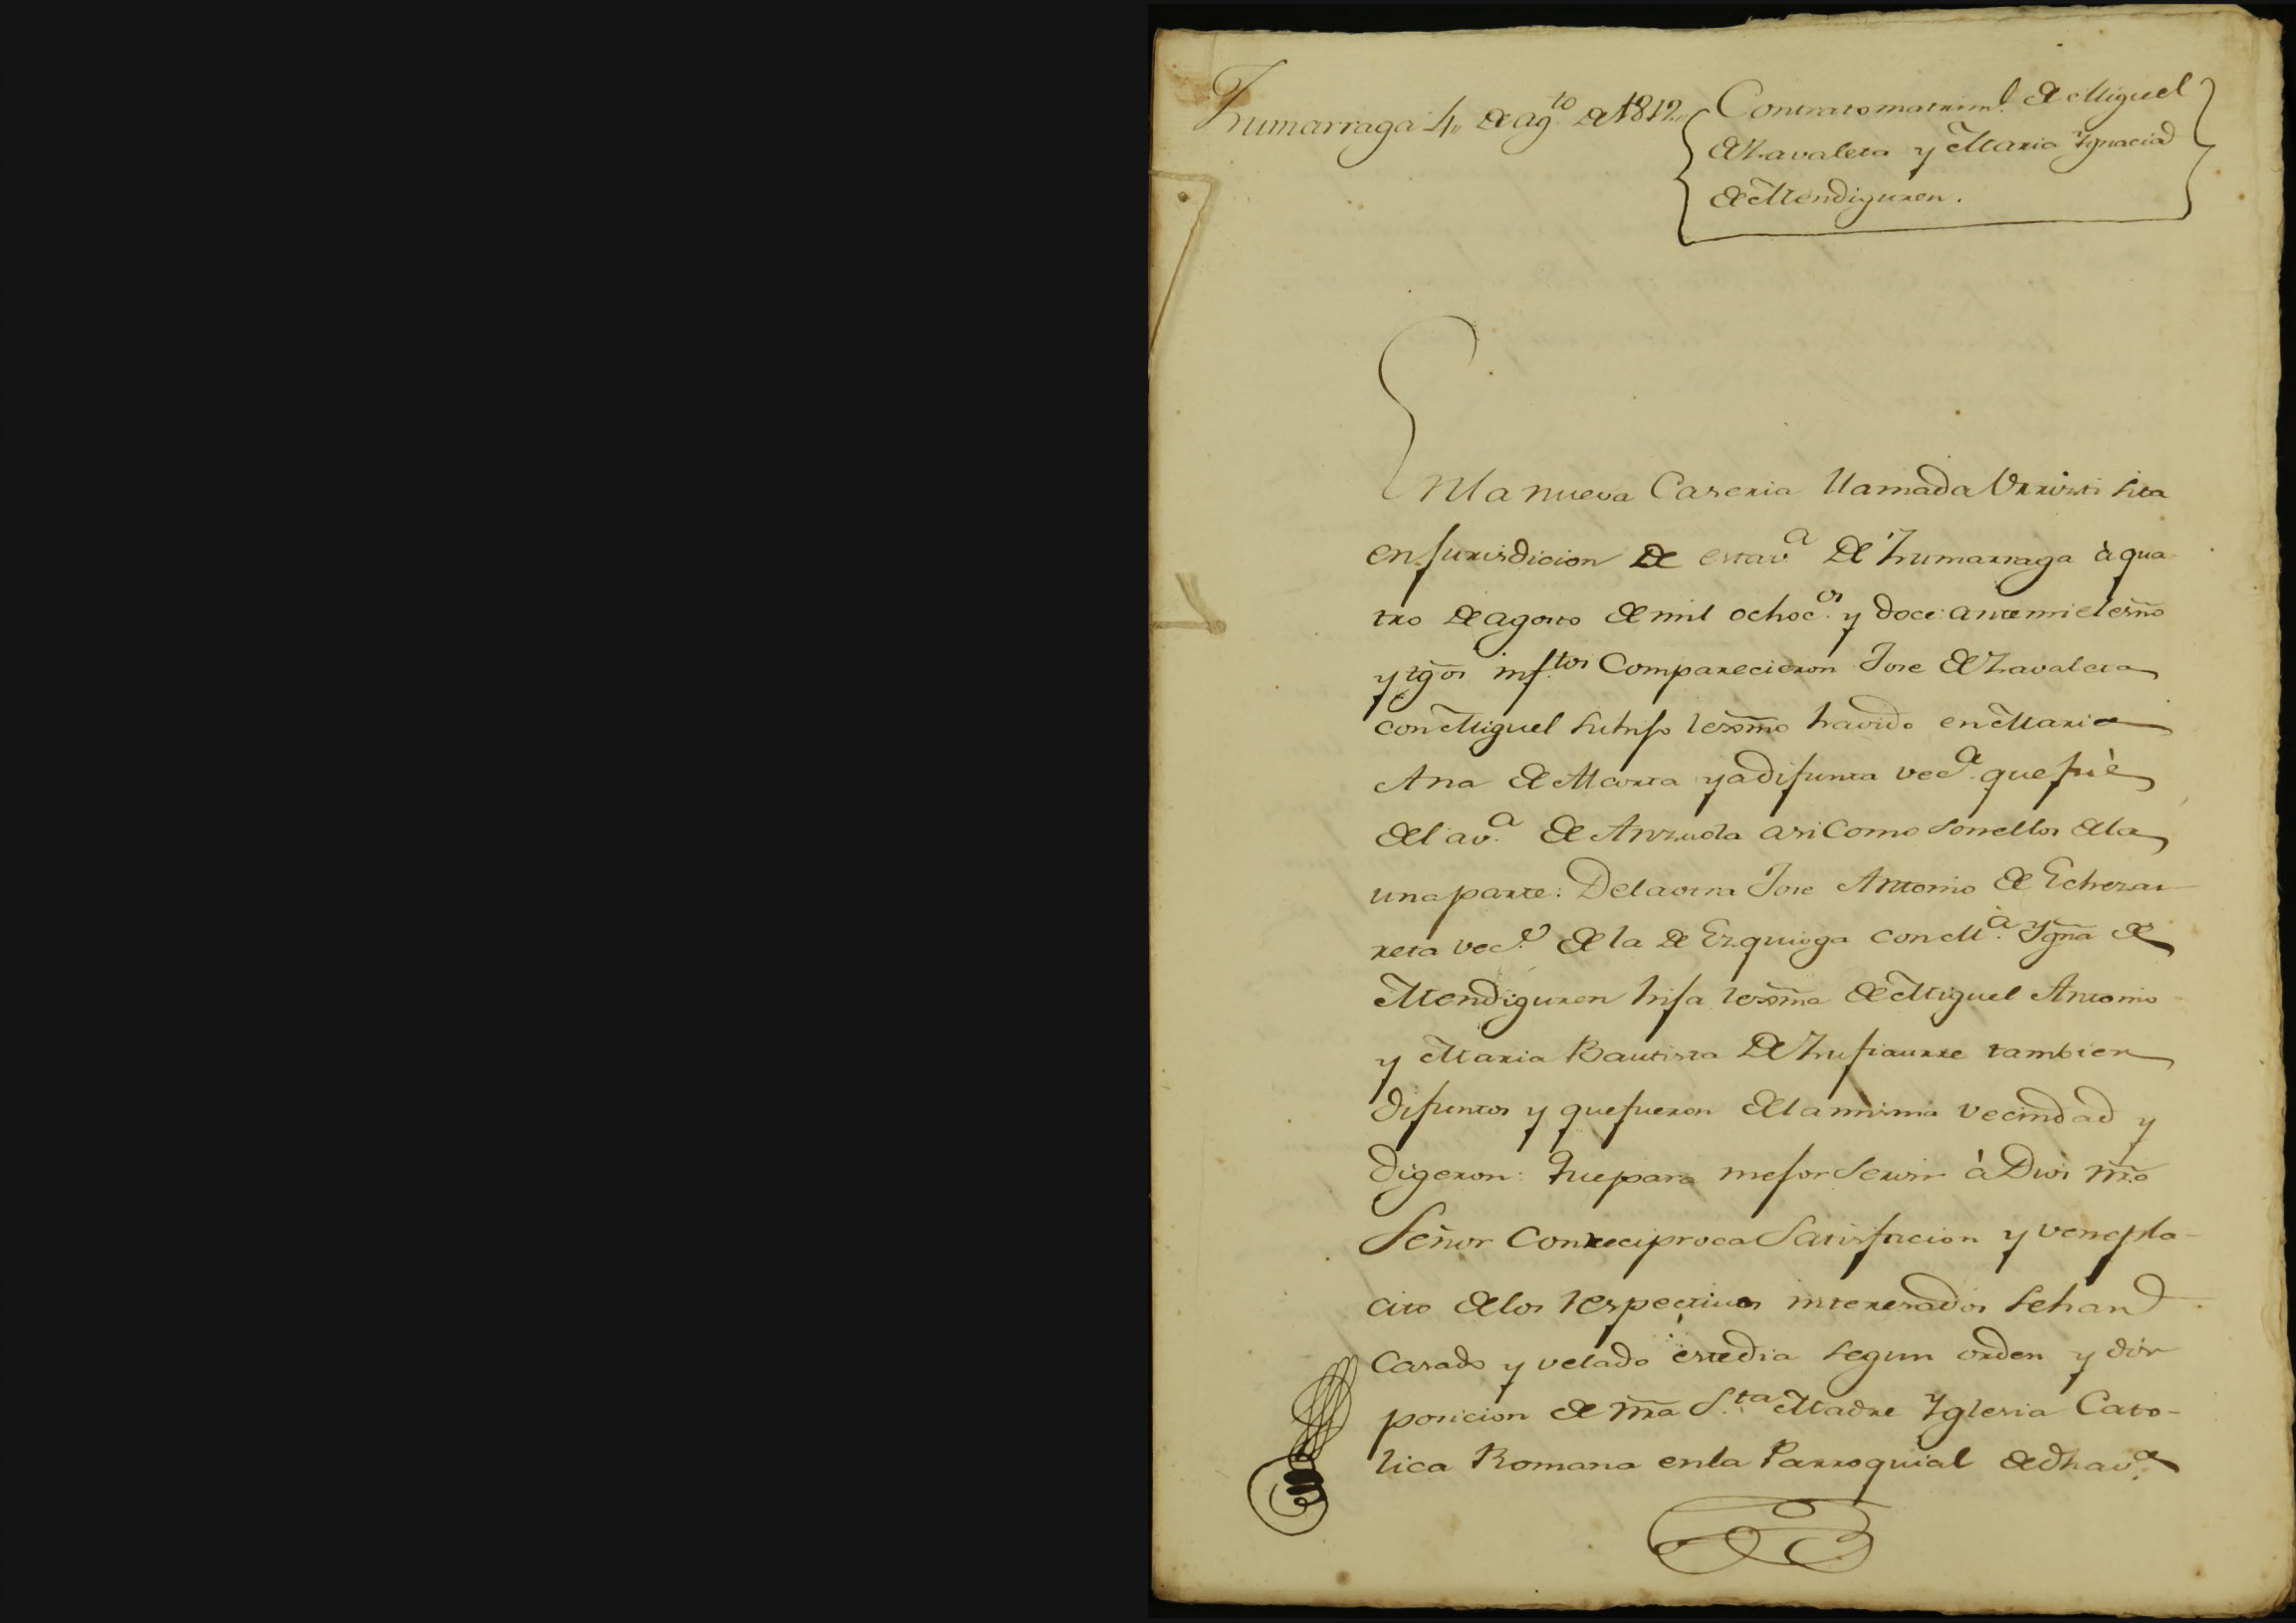 Zumarraga 4,, de ag.to de 1812,,
Contrato matrim.l de Miguel
de Zavaleta y Maria Ygnacia
de Mendiguren.
En la nueva Caseria llamada Urrizti sita
en jurisdicion de esta v.a de Zumarraga à qua
tro de agosto de mil ochoc.os y doce: ante mi el esno
y tgos inf.tos Comparecieron Jose de Zavaleta
con Miguel su hijo lexmo havido en Maria
Ana de ya difunta vec.a que fuè
de la v.a de Anzuola asi Como son ellos de la
una parte: De la otra Jose Antonio de Echezar
reta vec.o de la de Ezquioga con M.a Ygna de
Mendiguren hija lexma de Miguel Antonio
y Maria Bautista de Zufiaurre tambien
difuntos y que fueron de la misma vecindad y
digeron: Que para mejor Servir à Dios nro
Señor Con reciproca Satisfacion y venepla-
cito de los respectivos interesados se han
Casado y velado este dia segun orden y dis
posicion de nra S.ta Madre Yglesia Cato-
lica Romana en la Parroquial de dha v.a